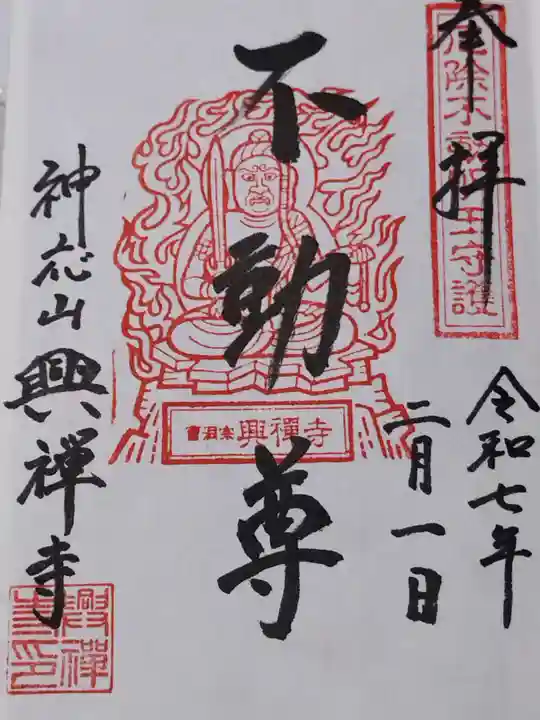 奉拝
厄除不動明王守護
令和七年
二月一日
不動尊
曹洞宗 興禅寺
神応山興禅寺
興禅寺印